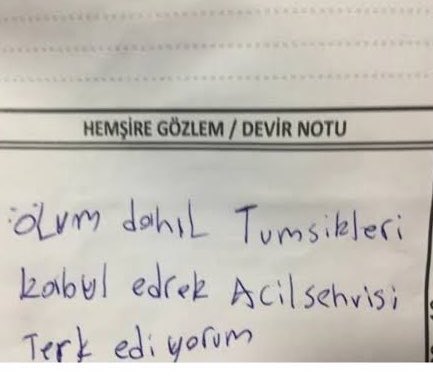 HEMŞİRE GÖZLEM / DEVİR NOTU
ÖLUM dahıL Tumsikleri
kabul edrek Acilsehvisi
Terk ediyorum